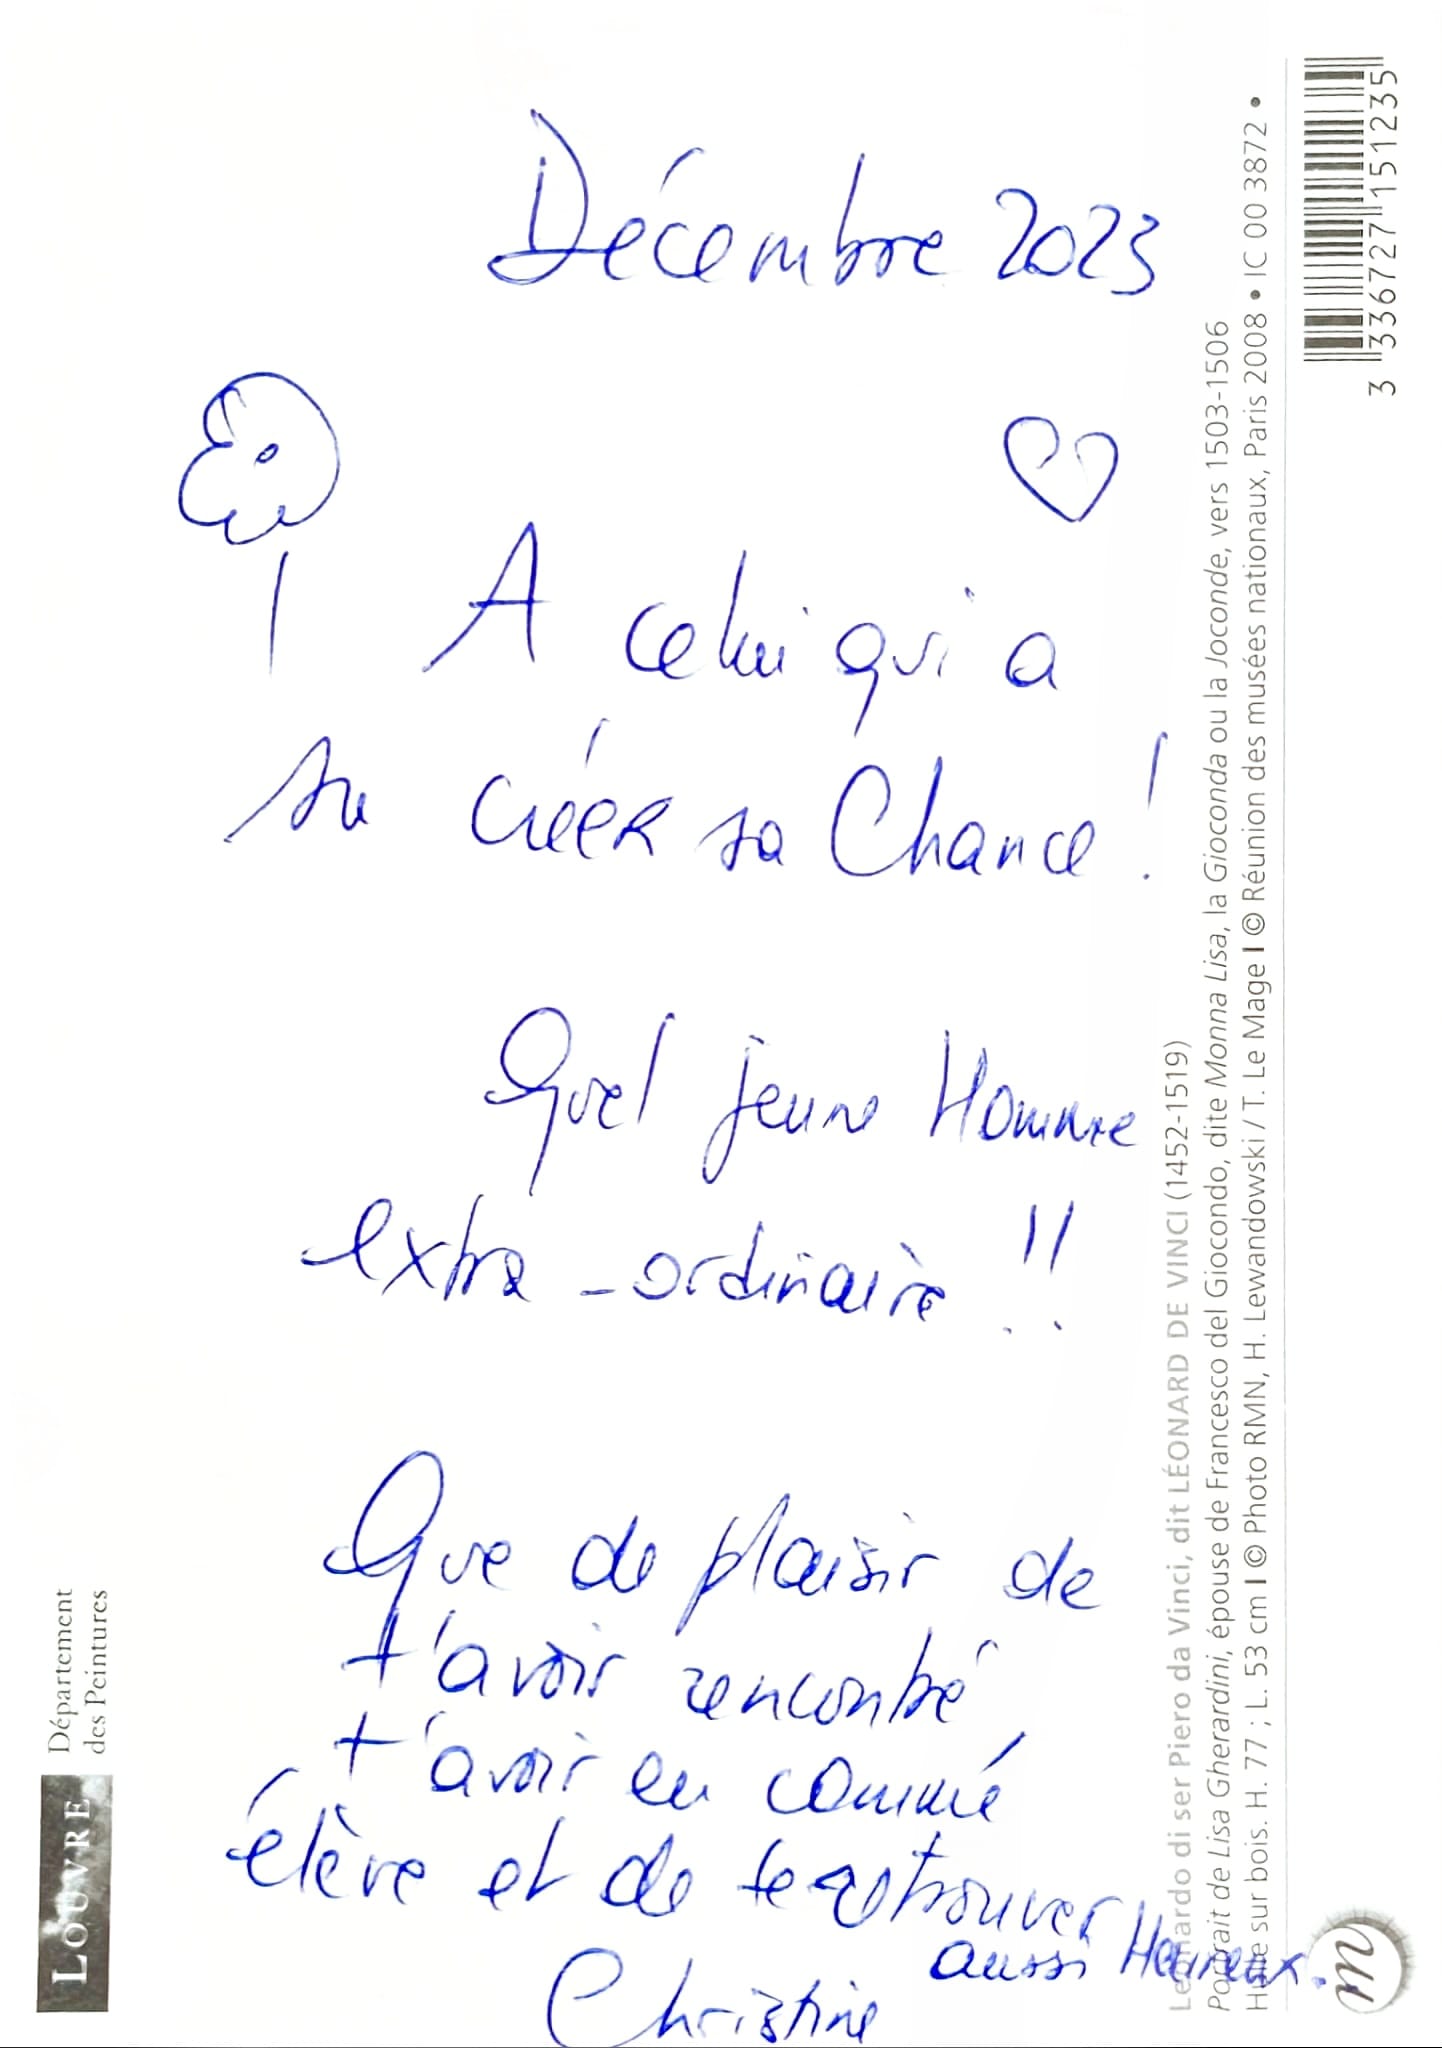 Décembre 2023
A celui qui a
su créer sa Chance !
Quel jeune Homme
extra-ordinaire !!
Que de plaisir de
t'avoir rencontré,
t'avoir eu comme
élève et de te retrouver
aussi Heureux.
Christine
LOUVRE
Département
des Peintures
Leonardo di ser Piero da Vinci, dit LÉONARD DE VINCI (1452-1519)
Portrait de Lisa Gherardini, épouse de Francesco del Giocondo, dite Monna Lisa, la Gioconda ou la Joconde, vers 1503-1506
Huile sur bois. H. 77 ; L. 53 cm I © Photo RMN, H. Lewandowski / T. Le Mage I © Réunion des musées nationaux, Paris 2008 • IC 00 3872 •
3 336727 151235
m